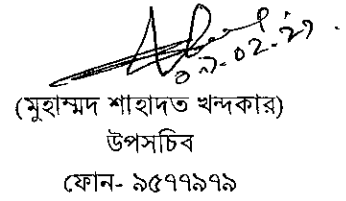 (মুহাম্মদ শাহাদত খন্দকার)
উপসচিব
ফোন- ৯৫৭৭৯৭৯